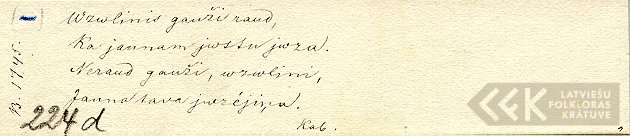 Wzwlinis gauži raud,
Ka jaunam jwstu jwzu.
Neraud gauži, wzwlini,
Jauna tava jwzējiņa.
Kab.
B. 1745.
224d
LATVIEŠU
FOLKLORAS
KRĀTUVE